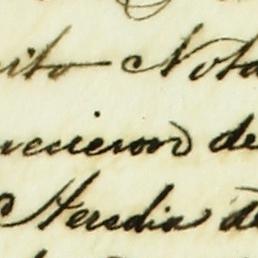 ito Nota
vecieron de
Heredia de